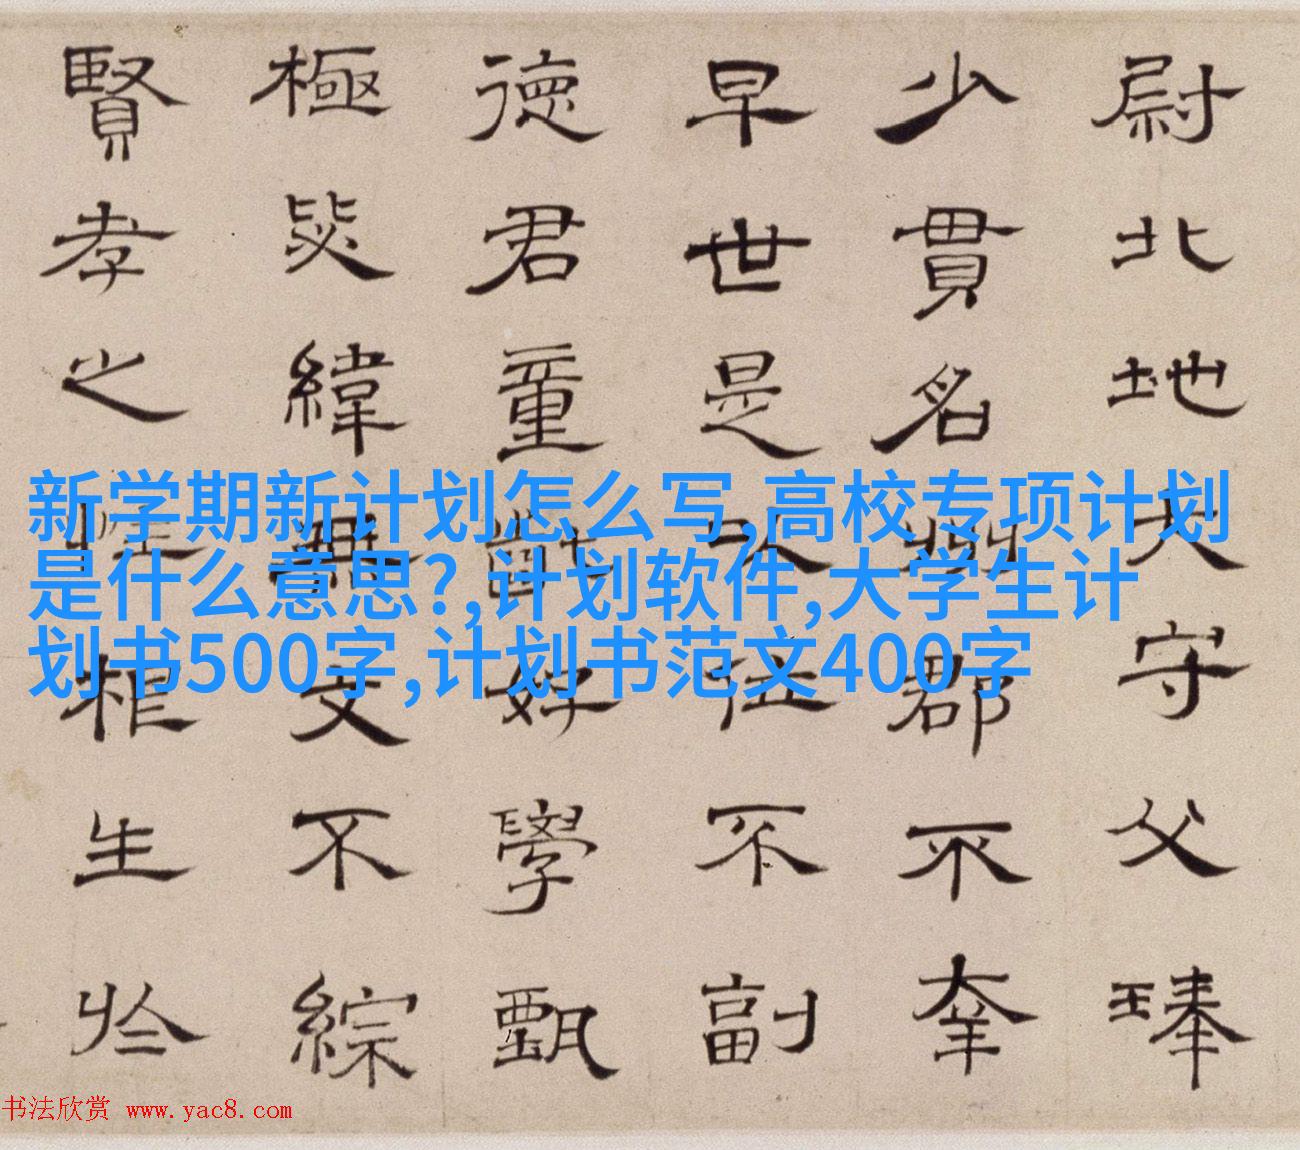 尉北地大守父琫
少貫名州郡不幸
早世是以位不副
德君童齔好學甄
極毖緯無文不綜
賢孝之性根生於
新学期新计划怎么写,高校专项计划
是什么意思?,计划软件,大学生计
划书500字,计划书范文400字
书法欣赏 www.yac8.com